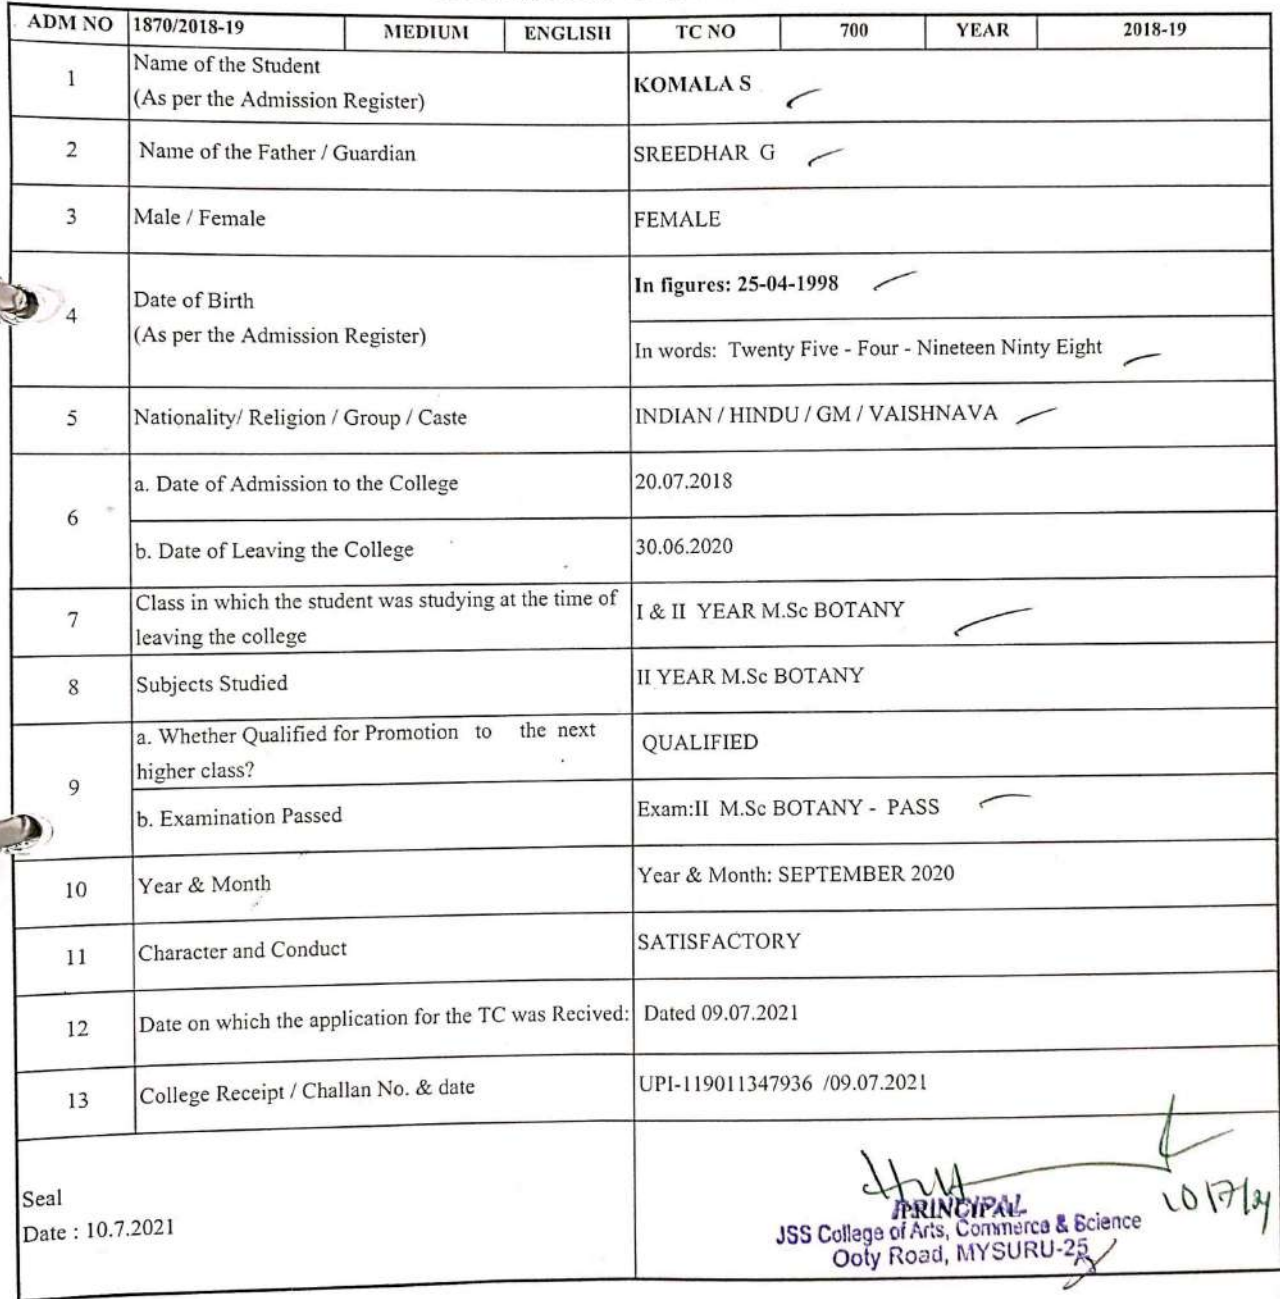 ADM NO 1870/2018-19 MEDIUM ENGLISH TC NO 700 YEAR 2018-19
1 Name of the Student
(As per the Admission Register) KOMALA S
2 Name of the Father / Guardian SREEDHAR G
3 Male / Female FEMALE
4 Date of Birth
(As per the Admission Register)
In figures: 25-04-1998
In words: Twenty Five - Four - Nineteen Ninty Eight
5 Nationality/ Religion / Group / Caste INDIAN / HINDU / GM / VAISHNAVA
6 a. Date of Admission to the College 20.07.2018
b. Date of Leaving the College 30.06.2020
7 Class in which the student was studying at the time of
leaving the college I & II YEAR M.Sc BOTANY
8 Subjects Studied II YEAR M.Sc BOTANY
9 a. Whether Qualified for Promotion to the next
higher class? QUALIFIED
b. Examination Passed Exam:II M.Sc BOTANY - PASS
10 Year & Month Year & Month: SEPTEMBER 2020
11 Character and Conduct SATISFACTORY
12 Date on which the application for the TC was Recived: Dated 09.07.2021
13 College Receipt / Challan No. & date UPI-119011347936 /09.07.2021
Seal
Date : 10.7.2021
PRINCIPAL
JSS College of Arts, Commerce & Science
Ooty Road, MYSURU-25
10/7/21